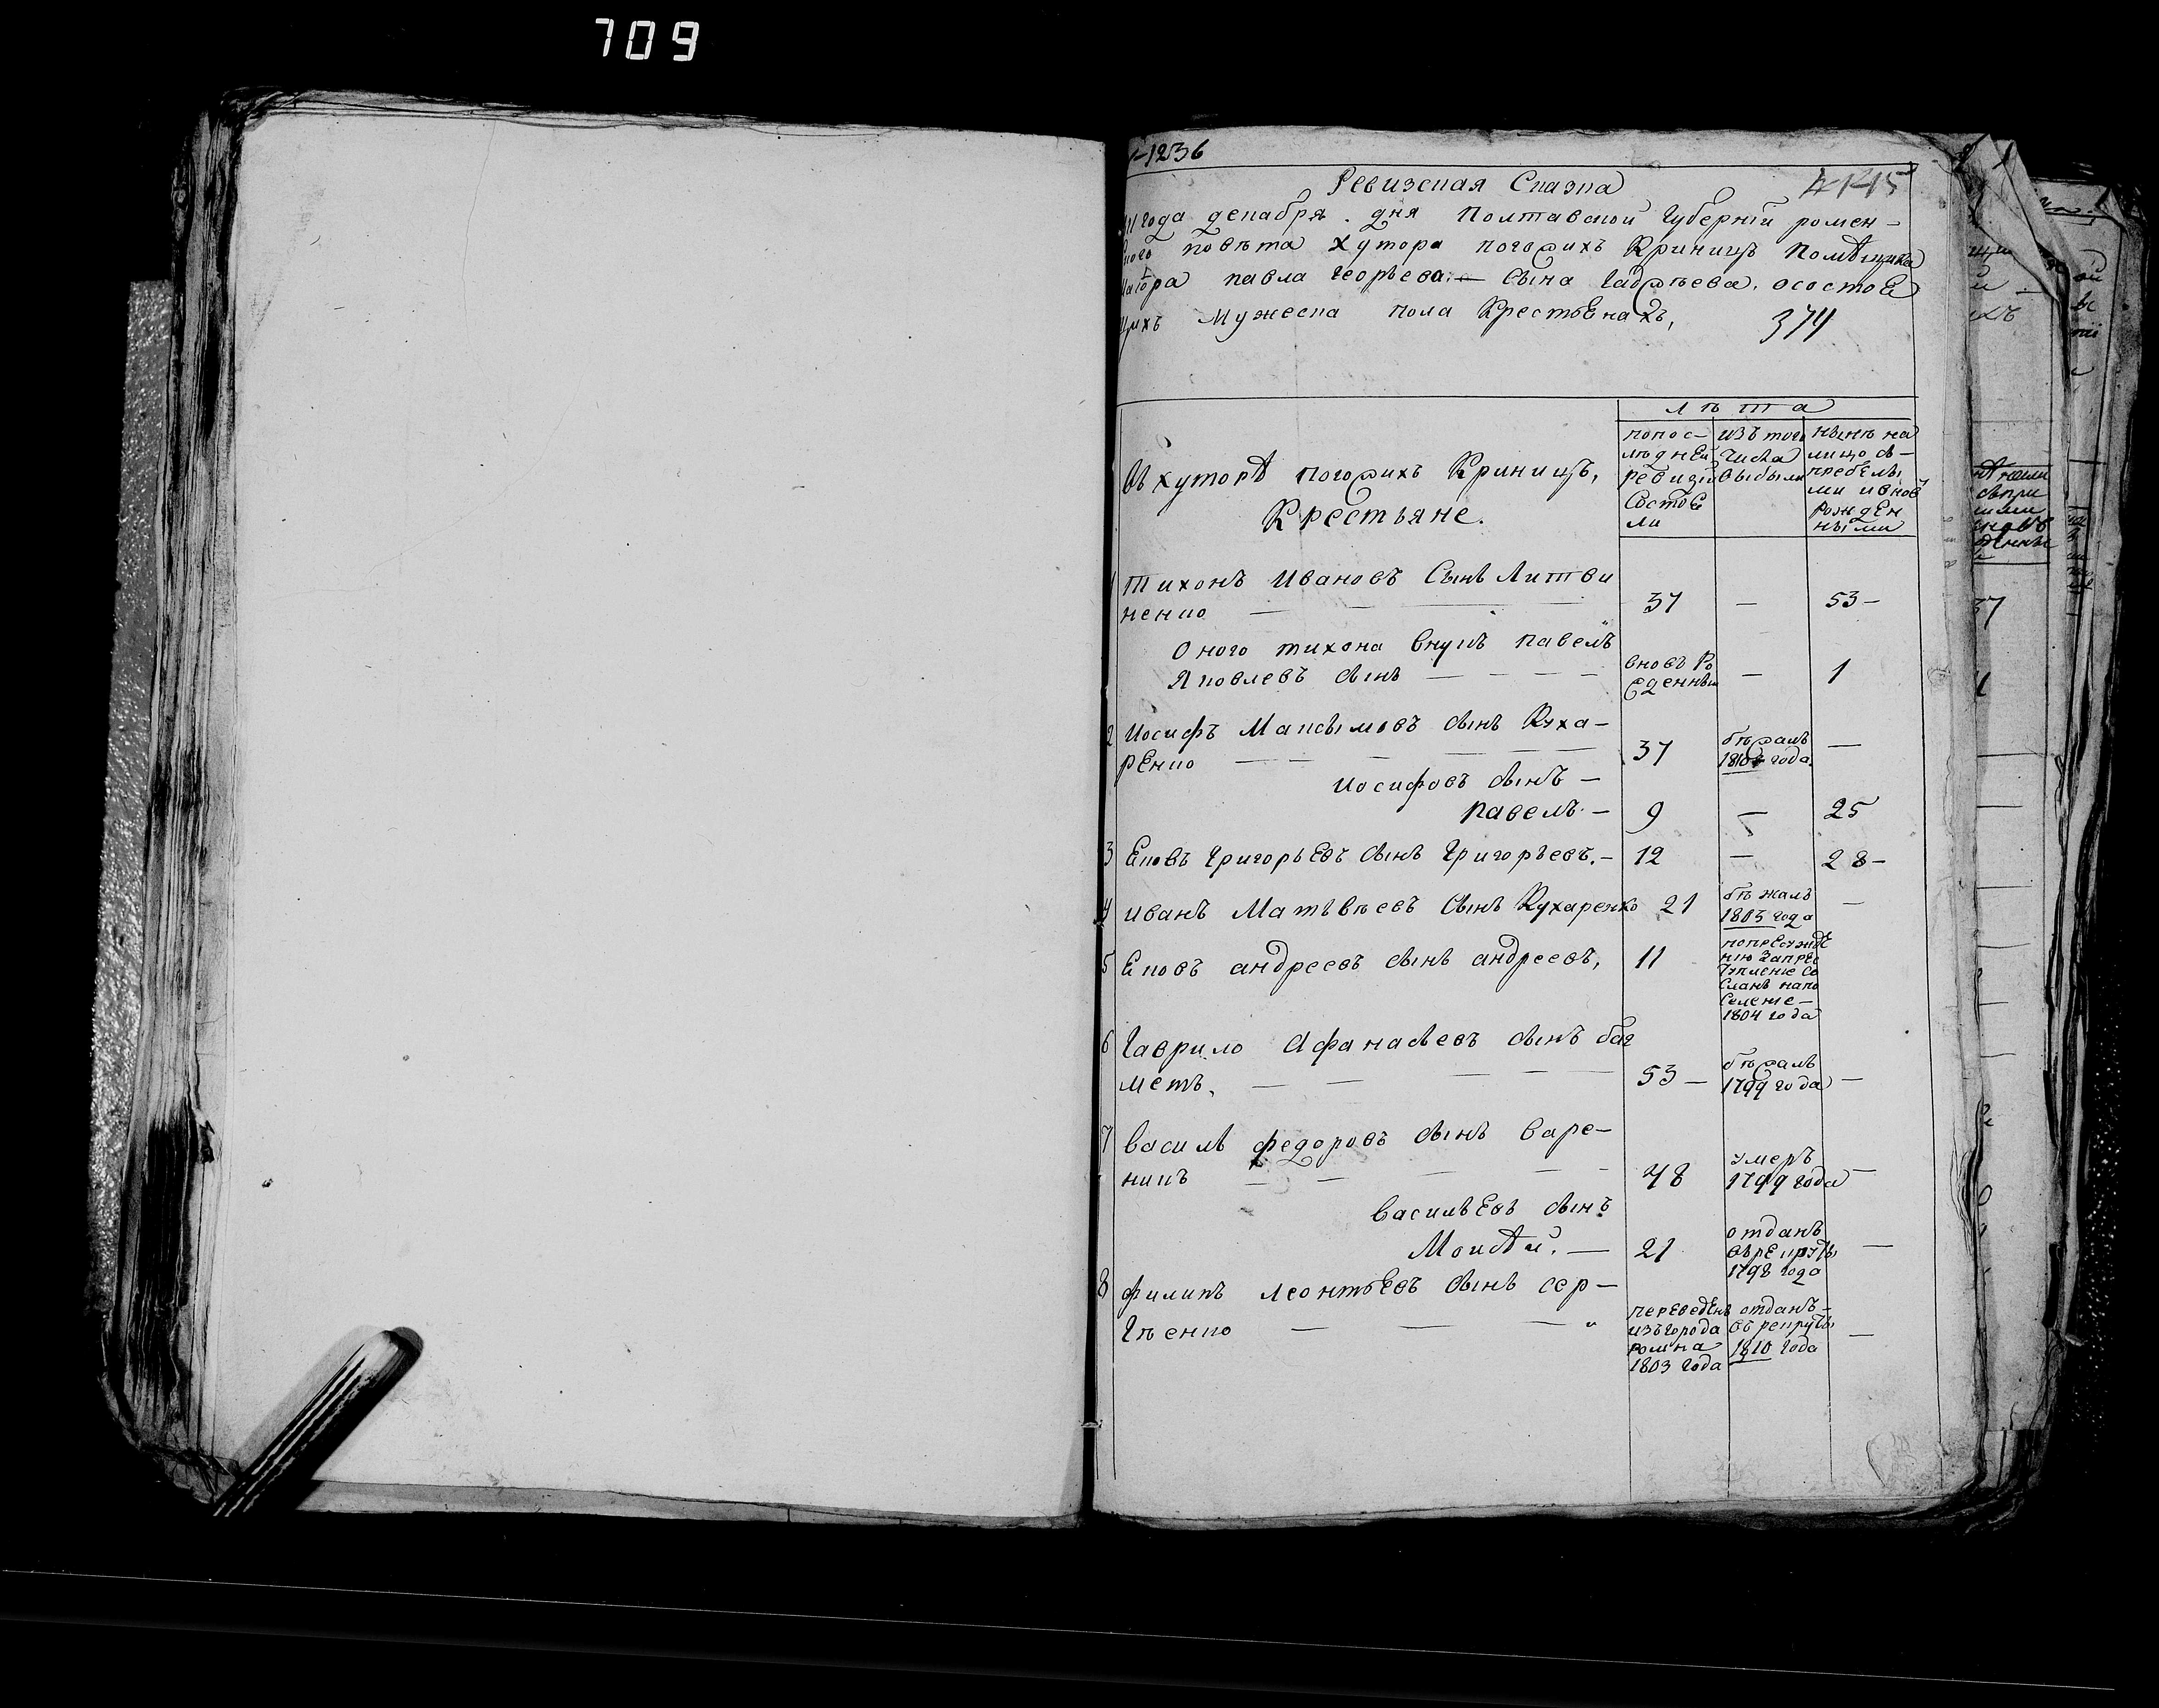 709
1236
Ревизская Сказка 4145
года декабря. дня Полтавской Губернїи ромен-
повѣта хутора погожихъ Криницъ Помѣщика
павла георьева.— сына гавжѣева. осостоѣ
щихъ Мужеска пола Крестьѣнахъ, 374
лѣта
въ хуторѣ погожихъ Криницъ,
Крестьяне.
попос-
лѣдней
ревизїи
состоѣ
ли
изъ того
числа
выбыли
нынѣ на
лицо съ-
прибылы
ми и внов
рожден
ными
1 Тихонъ Ивановъ Сынъ Литви
ненко — — — — 37 — 53-
Оного тихона внукъ павелъ
Яковлевъ сынъ — — — — вновь ро
жденный — 1
2 Иосифъ Максымовъ сынъ Куха-
ренко — — — — 37 бѣжалъ
года. —
Иосифовъ сынъ —
Павелъ.— 9 — 25
3 Яковъ Григорьевъ сынъ Григорьевъ.- 12 — 28-
4 Иванъ Матвѣевъ Сынъ Кухаренко 21 бѣжалъ
1805 года —
5 Яковъ андреевъ сынъ андреевъ, 11 попресужде
нию Запрес
тупленїе со
сланъ напо
селенїе—
1804 года
6 Гаврило Афанасьевъ сынъ баг
метъ. — — — — 53 — бѣжалъ
1799 года —
7 василь федоровъ сынъ варе-
никъ — — — — 48 умеръ
1799 года —
васильевъ сынъ
Моисѣй. — 21 отданъ
въ рекруты
1798 года —
8 филипъ леонтьевъ сынъ сер-
гѣенко — — — переведенъ
изъ города
ромна
1803 года
отданъ-
въ рекруты
1810 года —